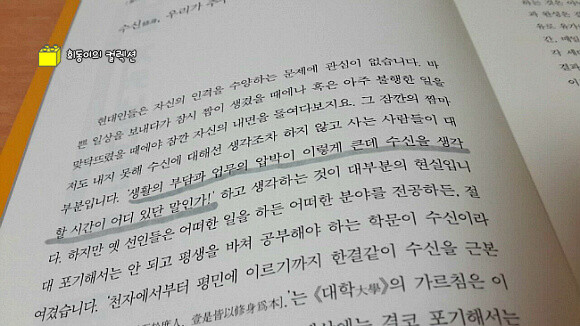 수신修身, 우리가 추구
희동이의 컬렉션
현대인들은 자신의 인격을 수양하는 문제에 관심이 없습니다. 바
쁜 일상을 보내다가 잠시 짬이 생겼을 때에나 혹은 아주 불행한 일을
맞닥뜨렸을 때에야 잠깐 자신의 내면을 들여다보지요. 그 잠깐의 짬마
저도 내지 못해 수신에 대해선 생각조차 하지 않고 사는 사람들이 대
부분입니다. '생활의 부담과 업무의 압박이 이렇게 큰데 수신을 생각
할 시간이 어디 있단 말인가!' 하고 생각하는 것이 대부분의 현실입니
다. 하지만 옛 선인들은 어떠한 일을 하든 어떠한 분야를 전공하든, 절
대 포기해서는 안 되고 평생을 바쳐 공부해야 하는 학문이 수신이라
여겼습니다. '천자에서부터 평민에 이르기까지 한결같이 수신을 근본
庶人, 壹是皆以修身爲本].'는 《대학大學》의 가르침은 이
에서는 결코 포기해서는
하는 것은